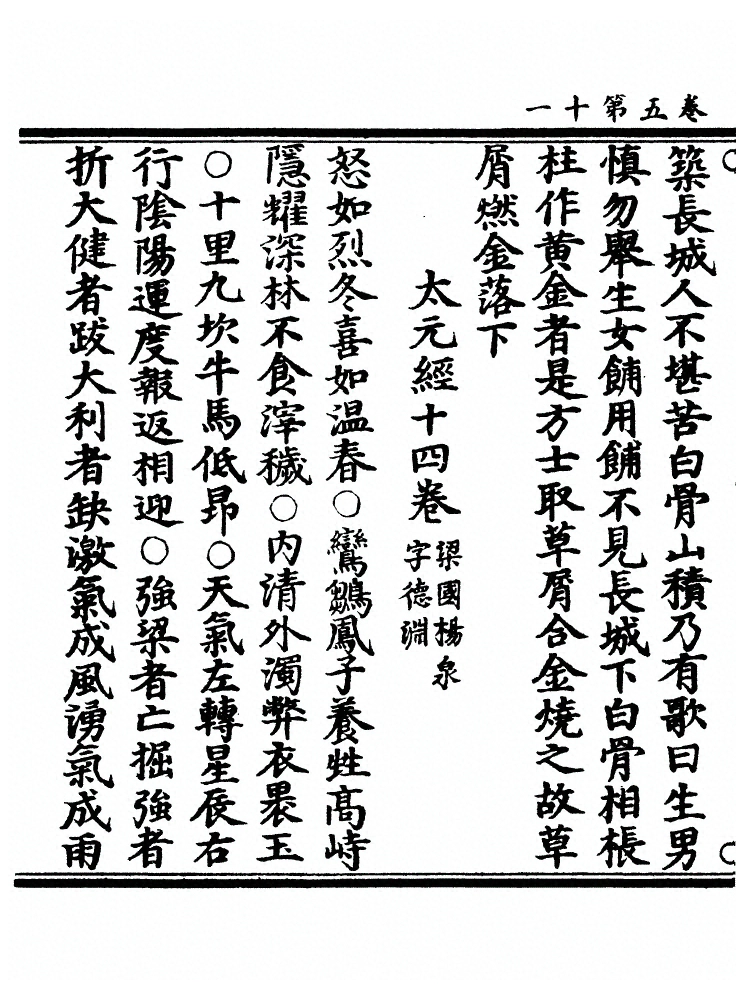 卷五第十一
築長城人不堪苦白骨山積乃有歌曰生男
慎勿舉生女餔用餔不見長城下白骨相棖
柱作黄金者是方士取草屑合金燒之故草
屑燃金落下
太元經十四卷
梁國楊泉
字德淵
怒如烈冬喜如温春○鸞鶵鳳子養甡高峙
隱耀深林不食滓穢○内清外濁弊衣褁玉
○十里九坎牛馬低昂○天氣左轉星辰右
行陰陽運度報返相迎○強梁者亡掘強者
折大健者跋大利者缺激氣成風湧氣成雨